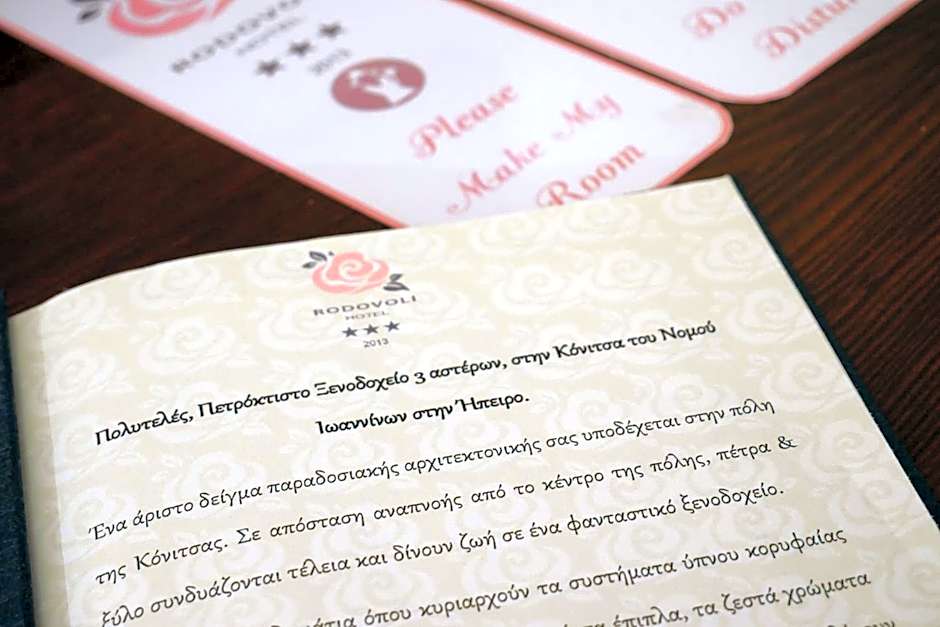 RODOVOLI
HOTEL
2013
Please
Make My
Room
Do
RODOVOLI
HOTEL
2013
Πολυτελές, Πετρόκτιστο Ξενοδοχείο 3 αστέρων, στην Κόνιτσα του Νομού
Ιωαννίνων στην Ήπειρο.
Ένα άριστο δείγμα παραδοσιακής αρχιτεκτονικής σας υποδέχεται στην πόλη
της Κόνιτσας. Σε απόσταση αναπνοής από το κέντρο της πόλης, πέτρα &
ξύλο συνδυάζονται τέλεια και δίνουν ζωή σε ένα φανταστικό ξενοδοχείο.
όπου κυριαρχούν τα συστήματα ύπνου κορυφαίας
έπιπλα, τα ζεστά χρώματα